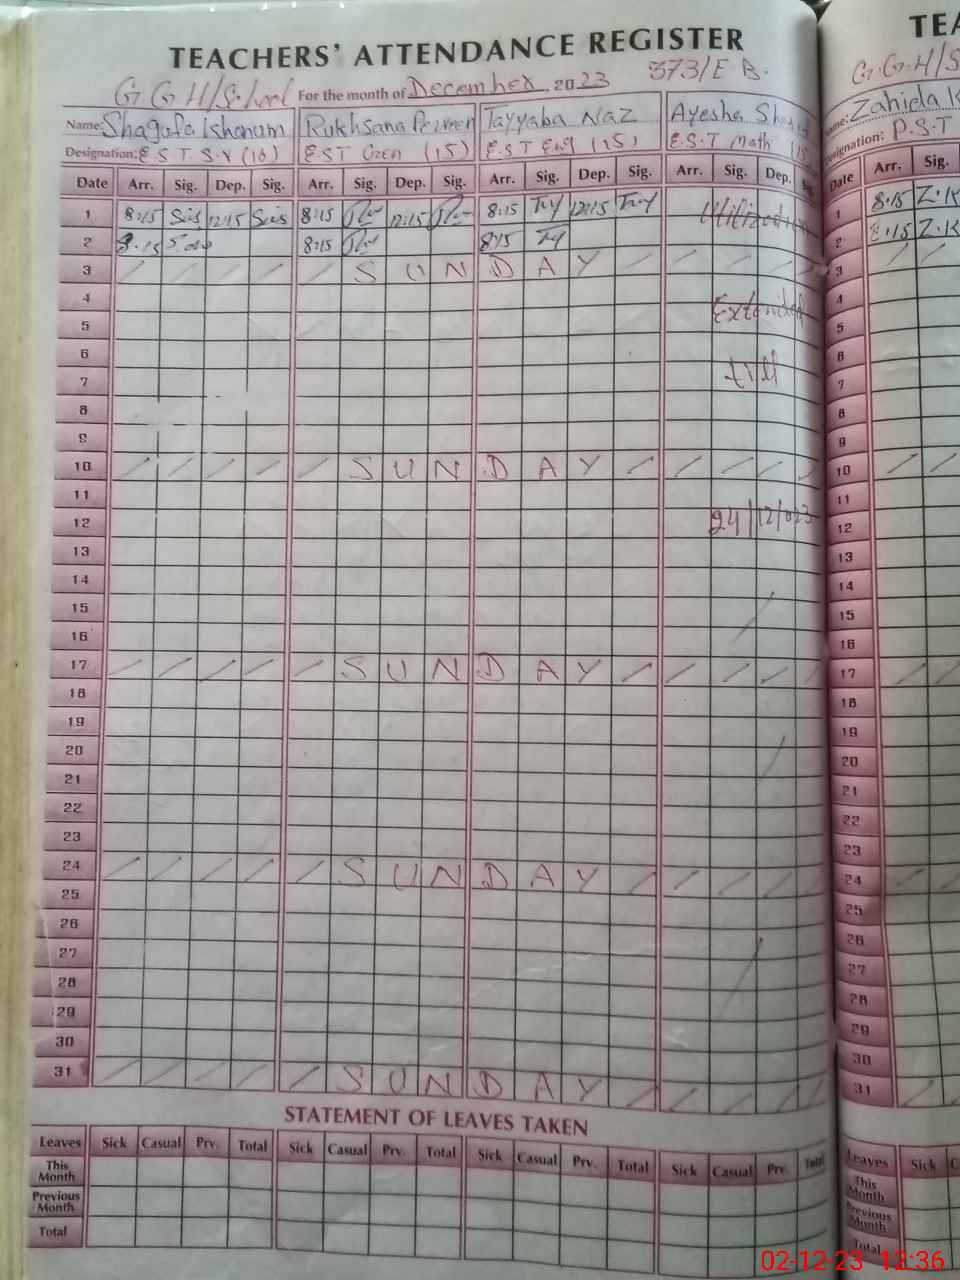 TEACHERS' ATTENDANCE REGISTER
G.G.H/School For the month of December, 2023 373/E B.
Name: Shagufa Khanum Rukhsana Perveen Tayyaba NAZ Ayesha
Designation: E.S.T. S.V (16) E.S.T Gen (15) E.S.T Eng (15) E.S.T Math (15
Date Arr. Sig. Dep. Sig. Arr. Sig. Dep. Sig. Arr. Sig. Dep. Sig. Arr. Sig. Dep. Sig.
1 8:15 12:15 8:15 12:15 8:15 12:15
2 8:15 8:15 8:15
3 SUNDAY
4 Extended
5
6
7 till
8
9
10 SUNDAY
11
12 24/12/023
13
14
15
16
17 SUNDAY
18
19
20
21
22
23
24 SUNDAY
25
26
27
28
29
30
31 SUNDAY
STATEMENT OF LEAVES TAKEN
Leaves Sick Casual Prv. Total Sick Casual Prv. Total Sick Casual Prv. Total Sick Casual Prv. Total
This Month
Previous Month
Total
TEA
G.G.H/S
Name: Zahida K
Designation: P.S.T
Date Arr. Sig.
1 8:15 Z.K
2 8:15 Z.K
3
4
5
6
7
8
9
10
11
12
13
14
15
16
17
18
19
20
21
22
23
24
25
26
27
28
29
30
31
Leaves Sick C
This Month
Previous Month
Total
02-12-23 12:36